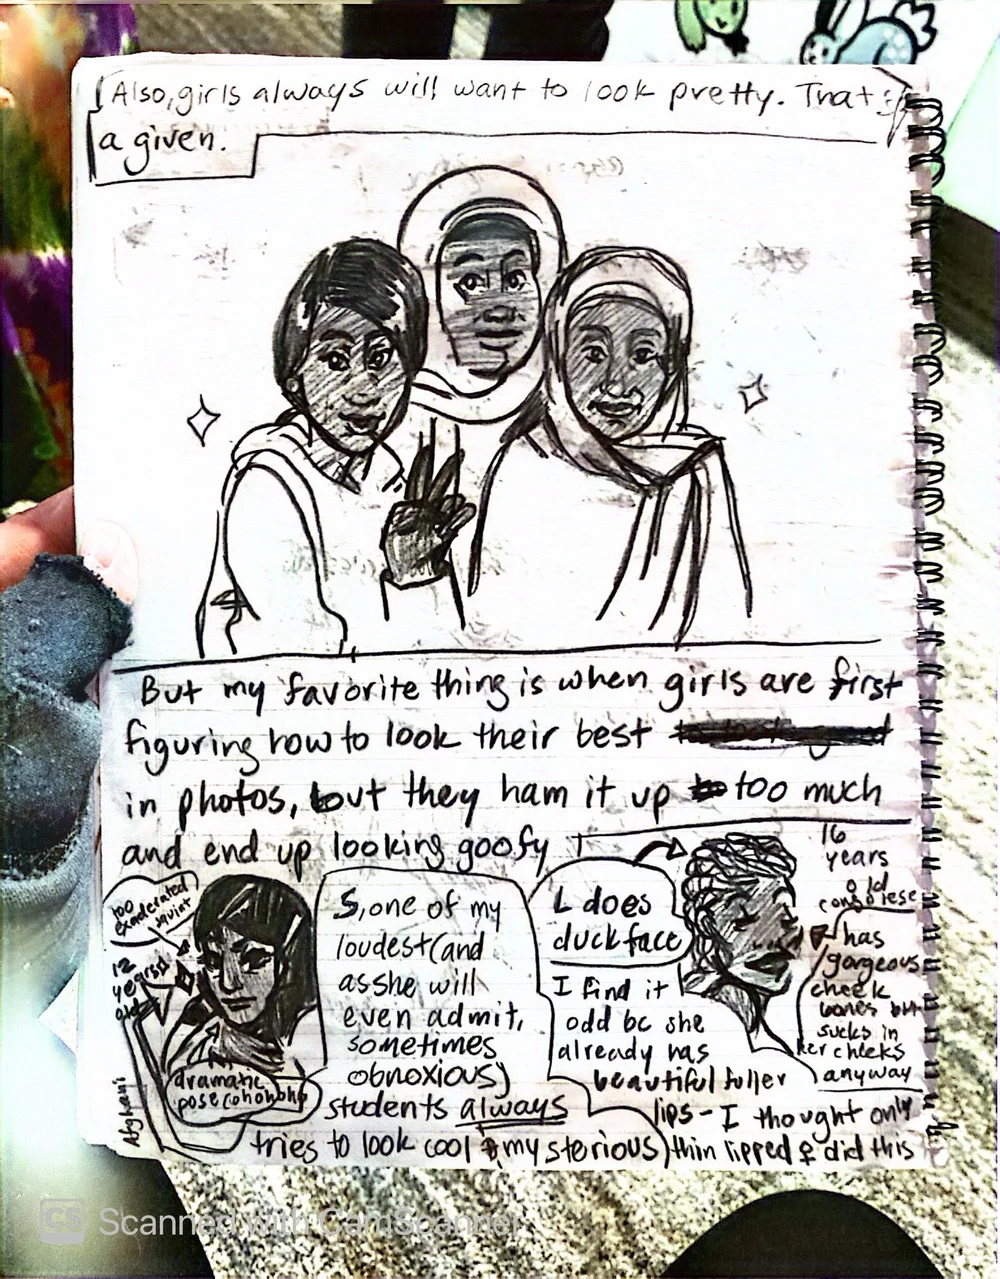 Also, girls always will want to look pretty. That's
a given.
But my favorite thing is when girls are first
figuring how to look their best
in photos, but they ham it up too much
and end up looking goofy
too
exaderated
squint
12
years
old
dramatic
pose (ohohoho
Afghani
S, one of my
loudest (and
as she will
even admit,
sometimes
obnoxious)
students always
tries to look cool & mysterious
L does
duck face
I find it
odd bc she
already has
beautiful fuller
lips - I thought only
thin lipped ♀ did this
16
years
old
congolese
has
gorgeous
cheek
bones but
sucks in
her cheeks
anyway
CS Scanned with CamScanner